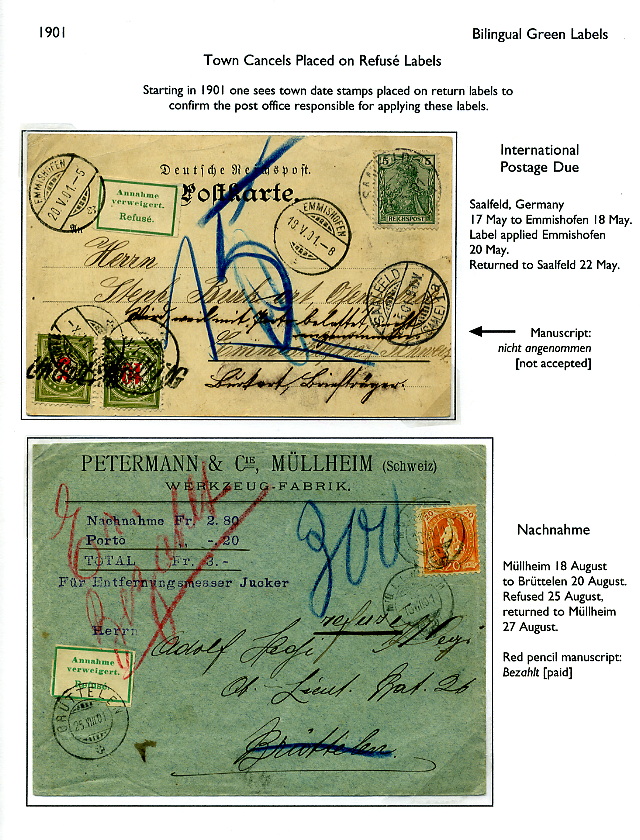 1901
Bilingual Green Labels
Town Cancels Placed on Refusé Labels
Starting in 1901 one sees town date stamps placed on return labels to
confirm the post office responsible for applying these labels.
International
Postage Due
Saalfeld, Germany
17 May to Emmishofen 18 May.
Label applied Emmishofen
20 May.
Returned to Saalfeld 22 May.
Manuscript:
nicht angenommen
[not accepted]
EMMISHOFEN
20 V.01.-5
Annahme
verweigert.
Refusé.
Deutsche Reichspost.
Postkarte.
EMMISHOFEN
18 V.01.-8
5 5
REICHSPOST
SAALFELD
Herrn
Wird weil mit Porto belastet nicht
angenommen
Briefträger.
PETERMANN & CIE, MÜLLHEIM (Schweiz)
WERKZEUG-FABRIK.
Nachnahme Fr. 2.80
Porto „ -.20
TOTAL Fr. 3.-
Für Entfernungsmesser Jucker
Bezahlt
300
20 20
refusé
Herrn
Adolf Hegi
Ob. Lieut. Bat. 26
Brüttelen
Annahme
verweigert.
Refusé.
BRÜTTELEN
25.VIII.01
Nachnahme
Müllheim 18 August
to Brüttelen 20 August.
Refused 25 August,
returned to Müllheim
27 August.
Red pencil manuscript:
Bezahlt [paid]